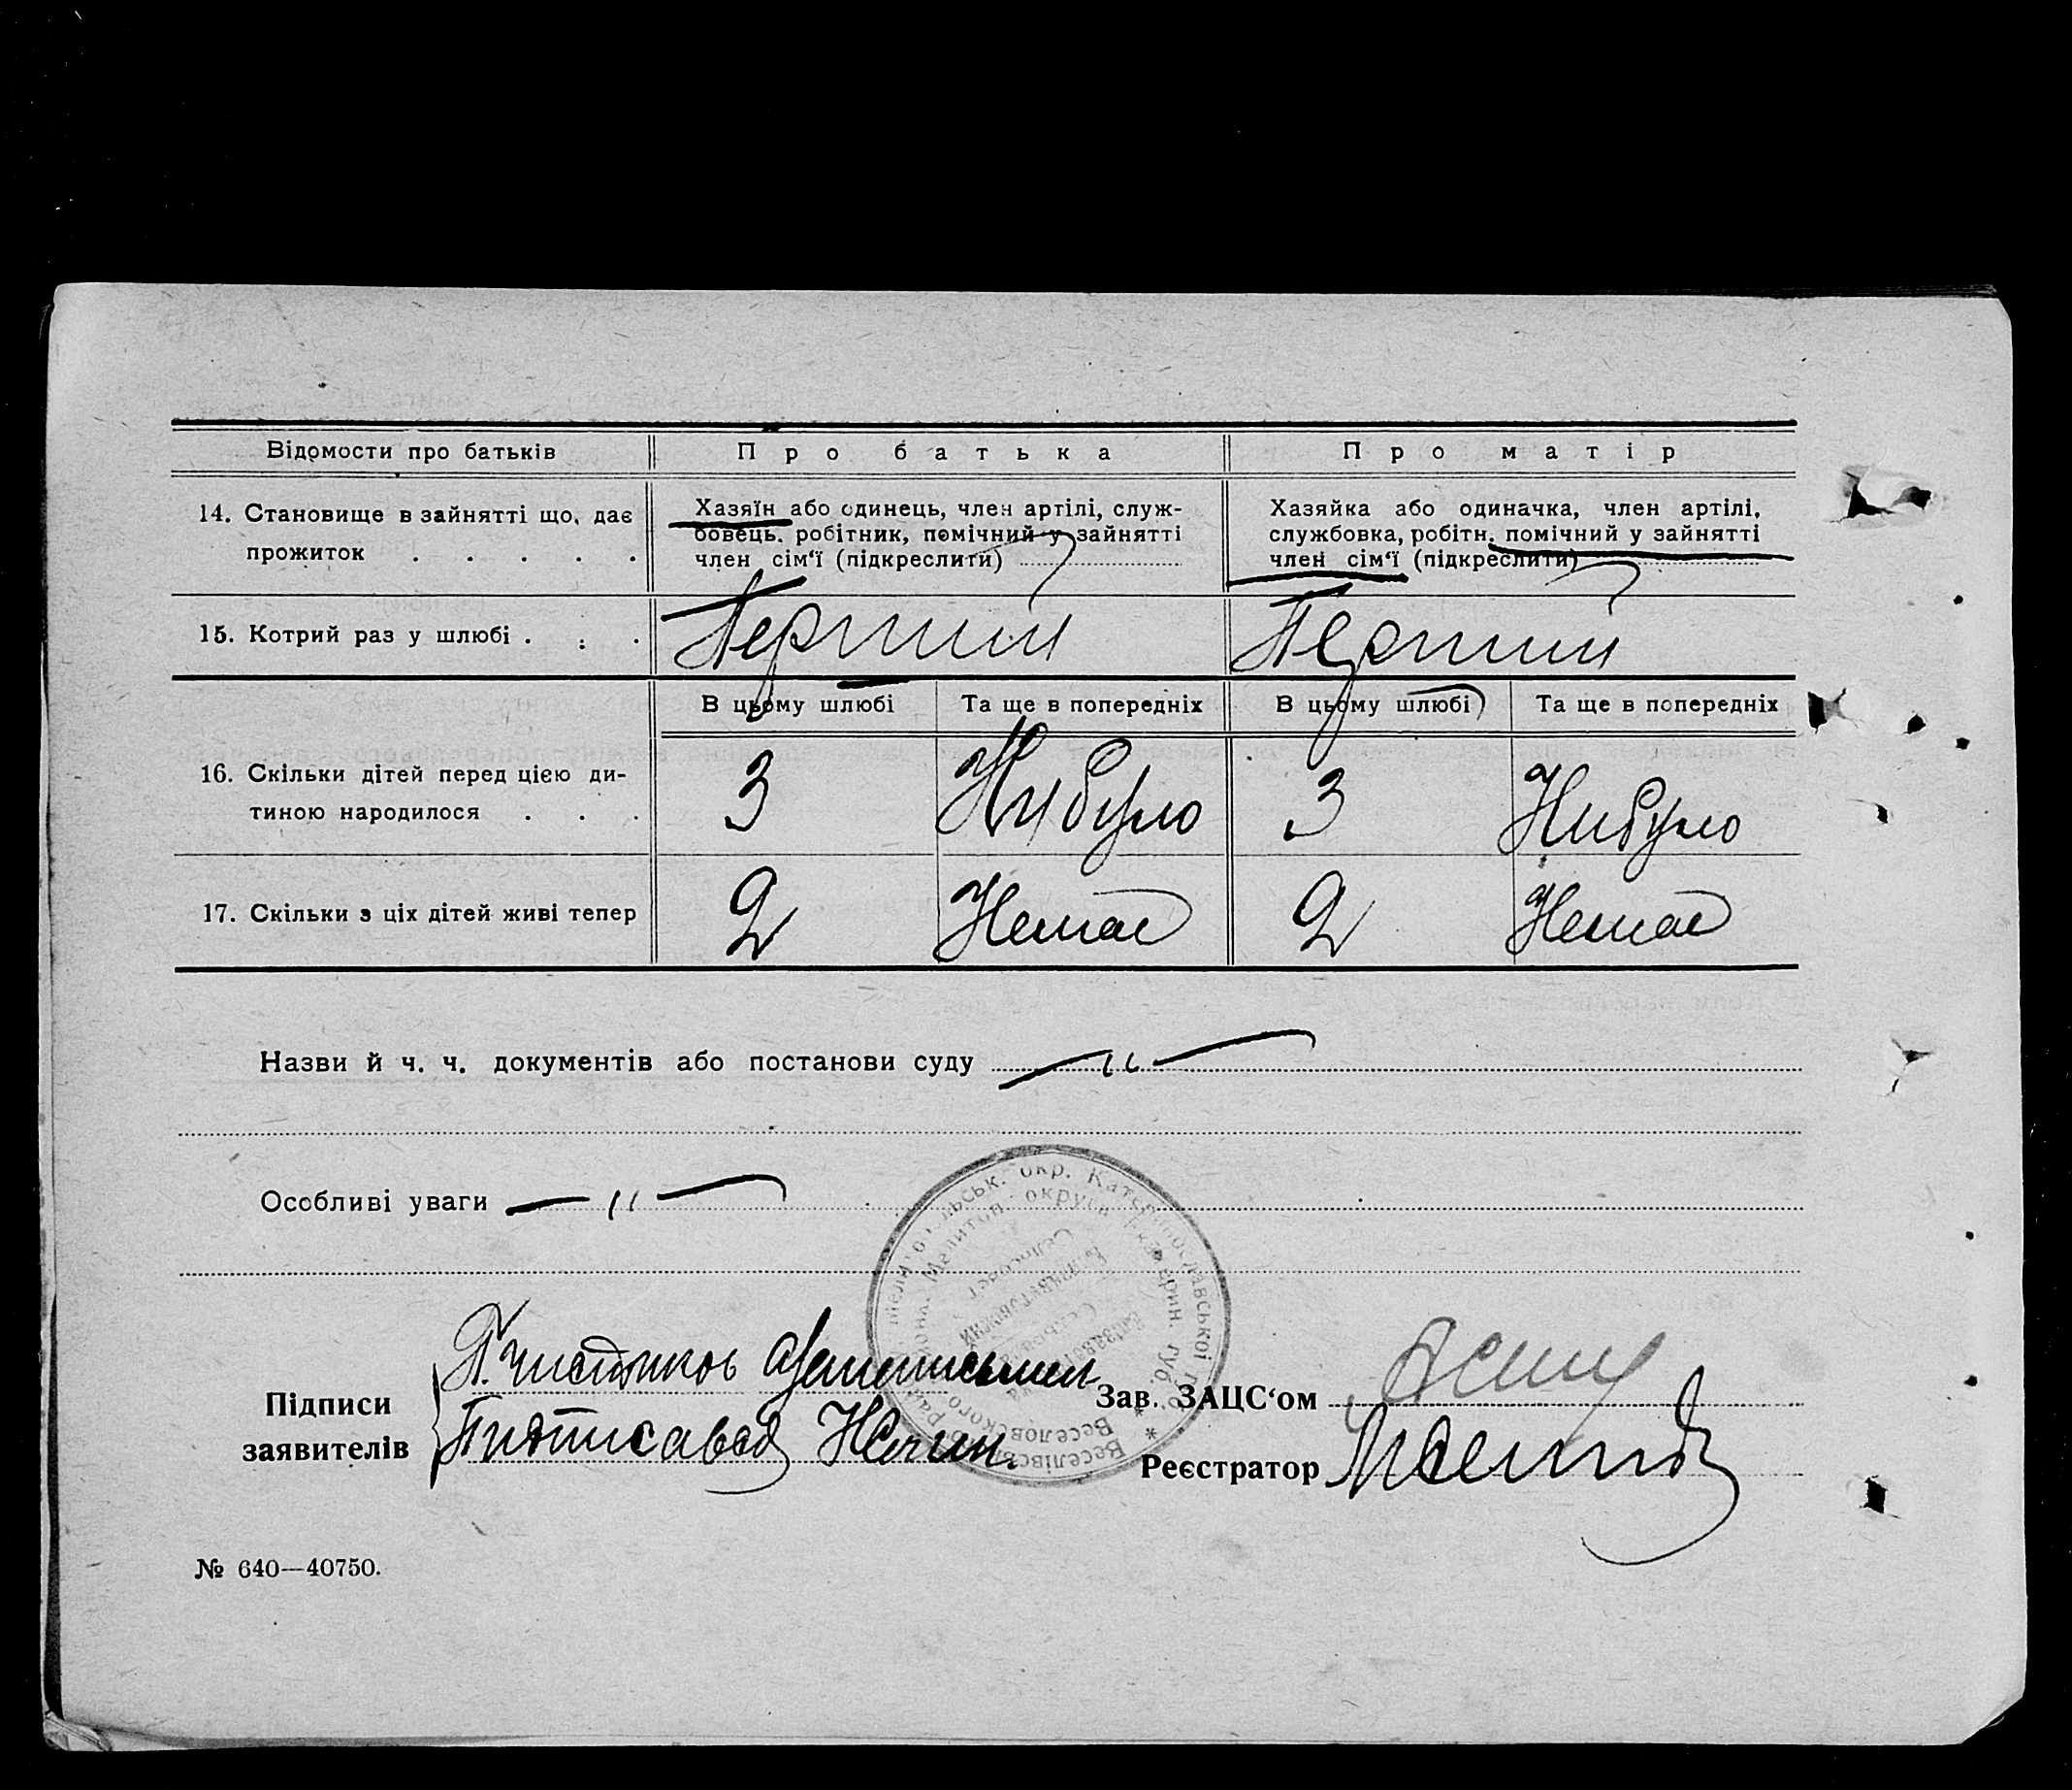 Відомости про батьків
Про батька
Про матір
14. Становище в зайнятті що, дає
прожиток . . . . .
Хазяїн або одинець, член артілі, служ-
бовець, робітник, помічний у зайнятті
член сім'ї (підкреслити)
Хазяйка або одиначка, член артілі,
службовка, робітн. помічний у зайнятті
член сім'ї (підкреслити)
15. Котрий раз у шлюбі . : .
Перший
Перший
В цьому шлюбі
Та ще в попередніх
В цьому шлюбі
Та ще в попередніх
16. Скільки дітей перед цією ди-
тиною народилося . . .
3
Нибуло
3
Нибуло
17. Скільки з ціх дітей живі тепер
2
Немає
2
Немає
Назви й ч. ч. документів або постанови суду —"—
Особливі уваги —"—
окр. Катеринославської
Мелитоп. округи Катерин. губ.
Веселовского
Підписи
заявителів
Зав. ЗАЦС'ом
Реєстратор
№ 640—40750.